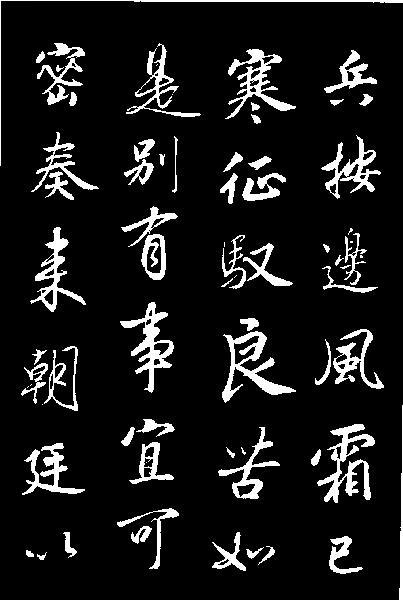 兵按邊風霜已
寒征馭良苦如
是別有事宜可
密奏来朝廷以